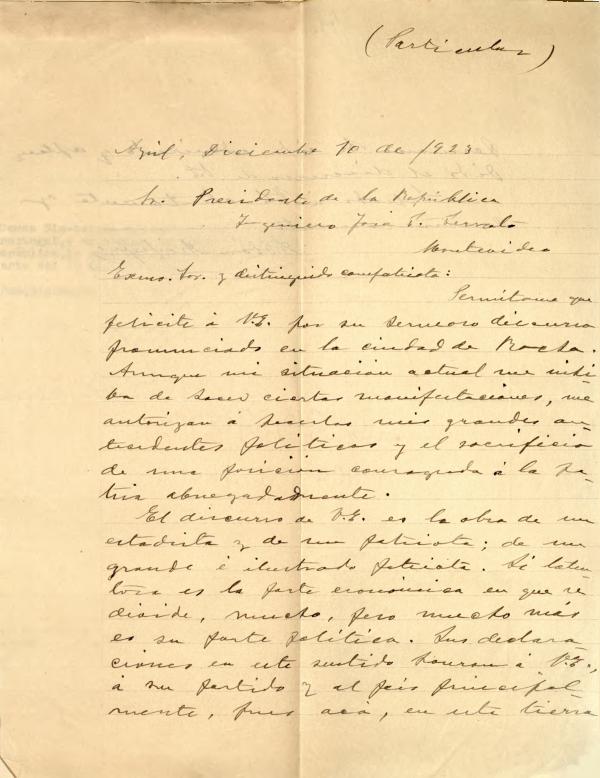 (Particular)
Azul, Diciembre 10 de 1923
Sr. Presidente de la República
Ingeniero José S. Serrato
Montevideo
Exmo. Sor. y distinguido compatriota:
Permítame que
felicite á V.E. por su discurso
pronunciado en la ciudad de Rocha.
Aunque mi situación actual me inhi-
ba de hacer ciertas manifestaciones, me
autorizan á hacerlas mis grandes an-
tecedentes políticos y el sacrificio
de una posición consagrada á la Pa-
tria abnegadamente.
El discurso de V.E. es la obra de un
estadista y de un patriota; de un
grande é ilustrado patriota. Si
es la parte económica en que se
divide, mucho, pero mucho más
es su parte política. Sus declara-
ciones en este sentido honran á V.E.,
á su partido y al país principal-
mente, pues acá, en esta tierra